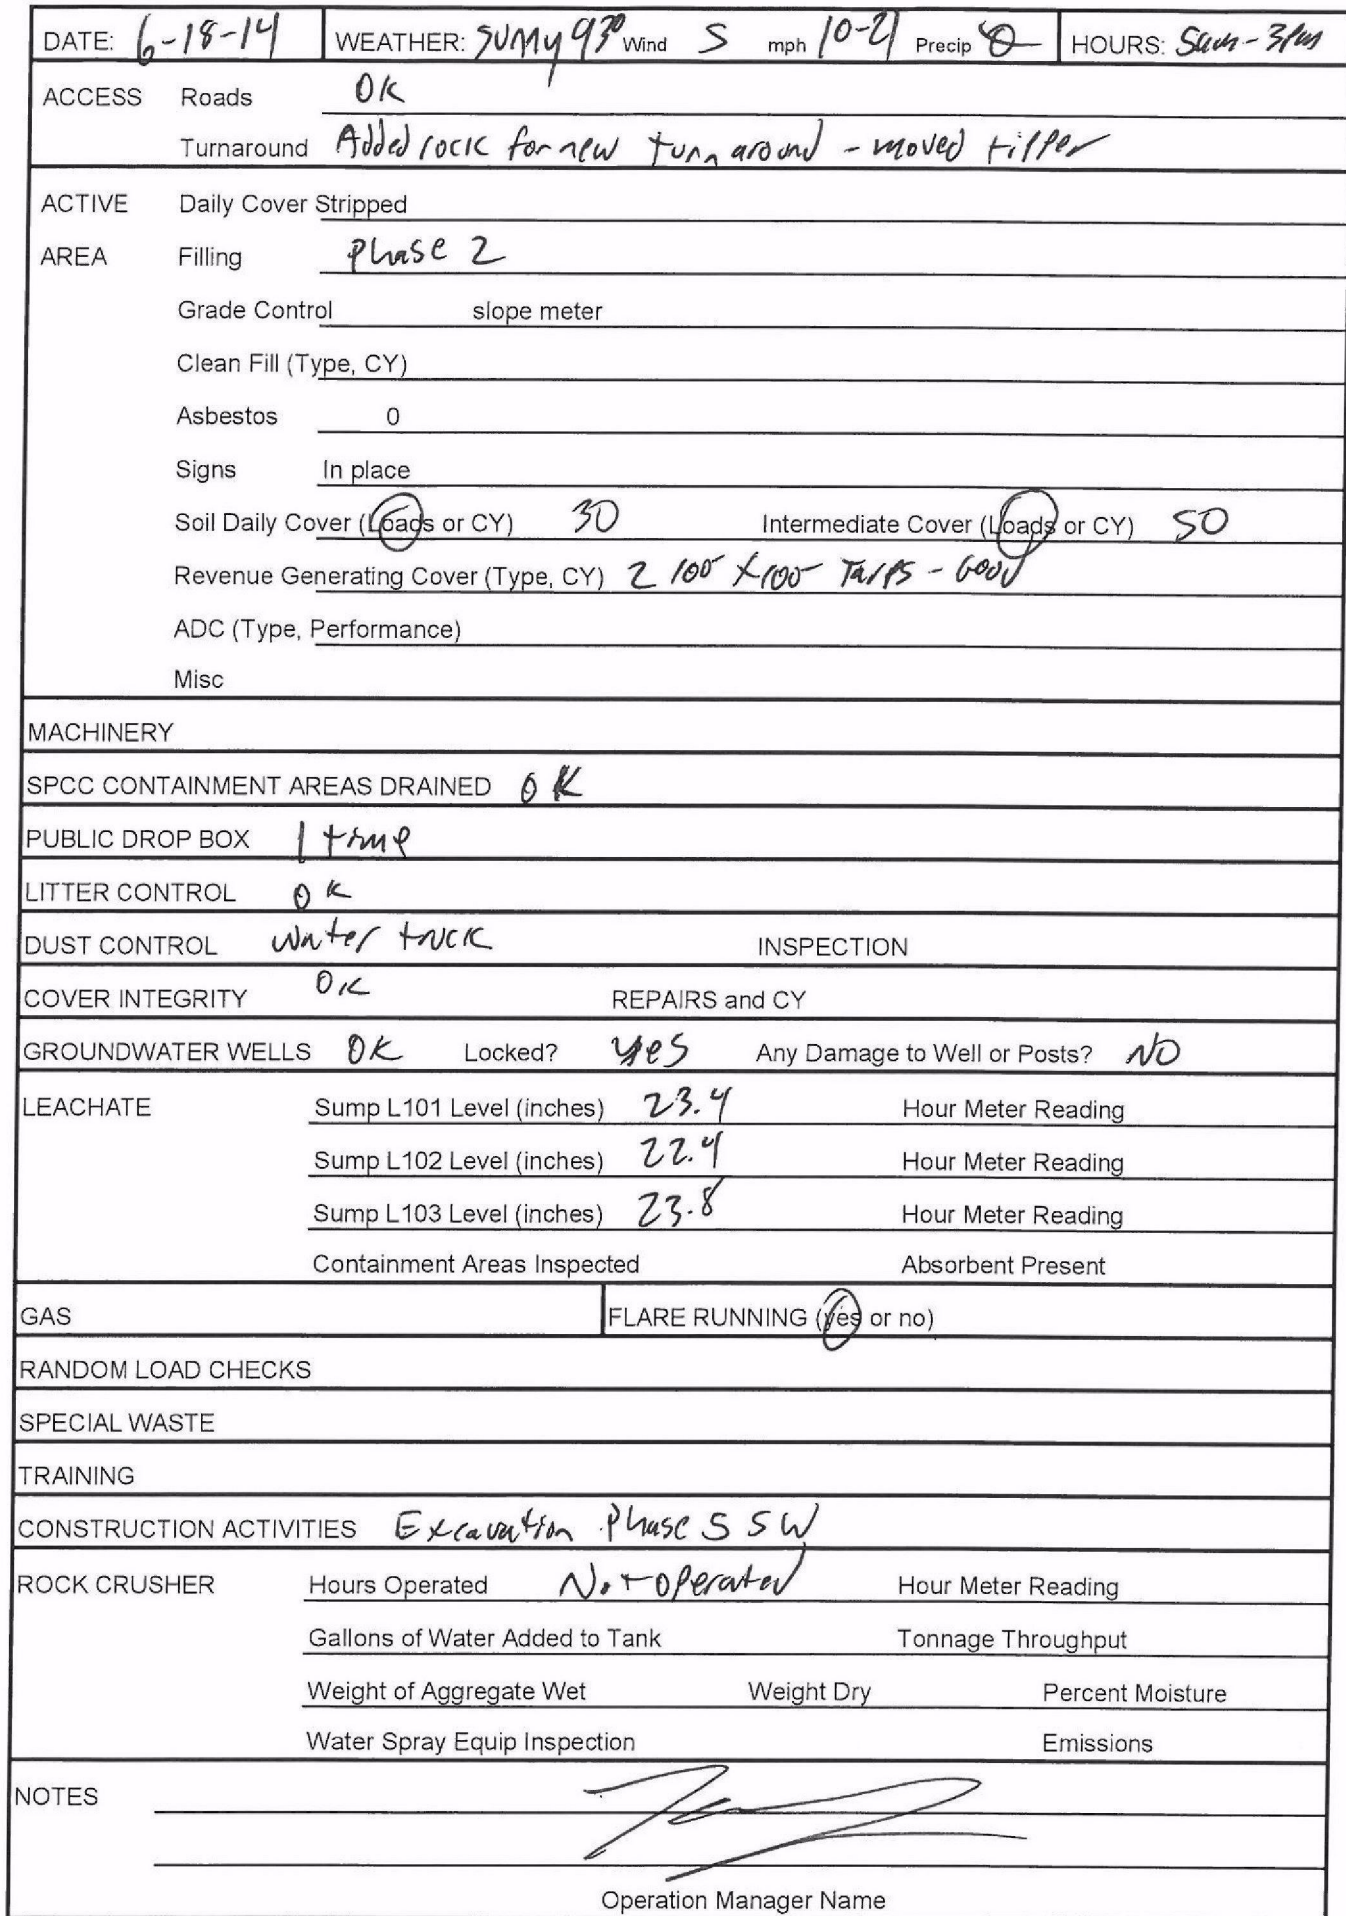 DATE: 6-18-14 WEATHER: Sunny 93° Wind S mph 10-21 Precip 0 HOURS: 5am-3pm
ACCESS Roads OK
Turnaround Added rock for new turn around - moved tipper
ACTIVE Daily Cover Stripped
AREA Filling Phase 2
Grade Control slope meter
Clean Fill (Type, CY)
Asbestos 0
Signs In place
Soil Daily Cover (Loads or CY) 30 Intermediate Cover (Loads or CY) 50
Revenue Generating Cover (Type, CY) 2 100 x 100 Tarps - Good
ADC (Type, Performance)
Misc
MACHINERY
SPCC CONTAINMENT AREAS DRAINED OK
PUBLIC DROP BOX 1 time
LITTER CONTROL OK
DUST CONTROL water truck INSPECTION
COVER INTEGRITY OK REPAIRS and CY
GROUNDWATER WELLS OK Locked? yes Any Damage to Well or Posts? NO
LEACHATE Sump L101 Level (inches) 23.4 Hour Meter Reading
Sump L102 Level (inches) 22.4 Hour Meter Reading
Sump L103 Level (inches) 23.8 Hour Meter Reading
Containment Areas Inspected Absorbent Present
GAS FLARE RUNNING (yes or no)
RANDOM LOAD CHECKS
SPECIAL WASTE
TRAINING
CONSTRUCTION ACTIVITIES Excavation Phase 5 SW
ROCK CRUSHER Hours Operated Not operated Hour Meter Reading
Gallons of Water Added to Tank Tonnage Throughput
Weight of Aggregate Wet Weight Dry Percent Moisture
Water Spray Equip Inspection Emissions
NOTES
Operation Manager Name